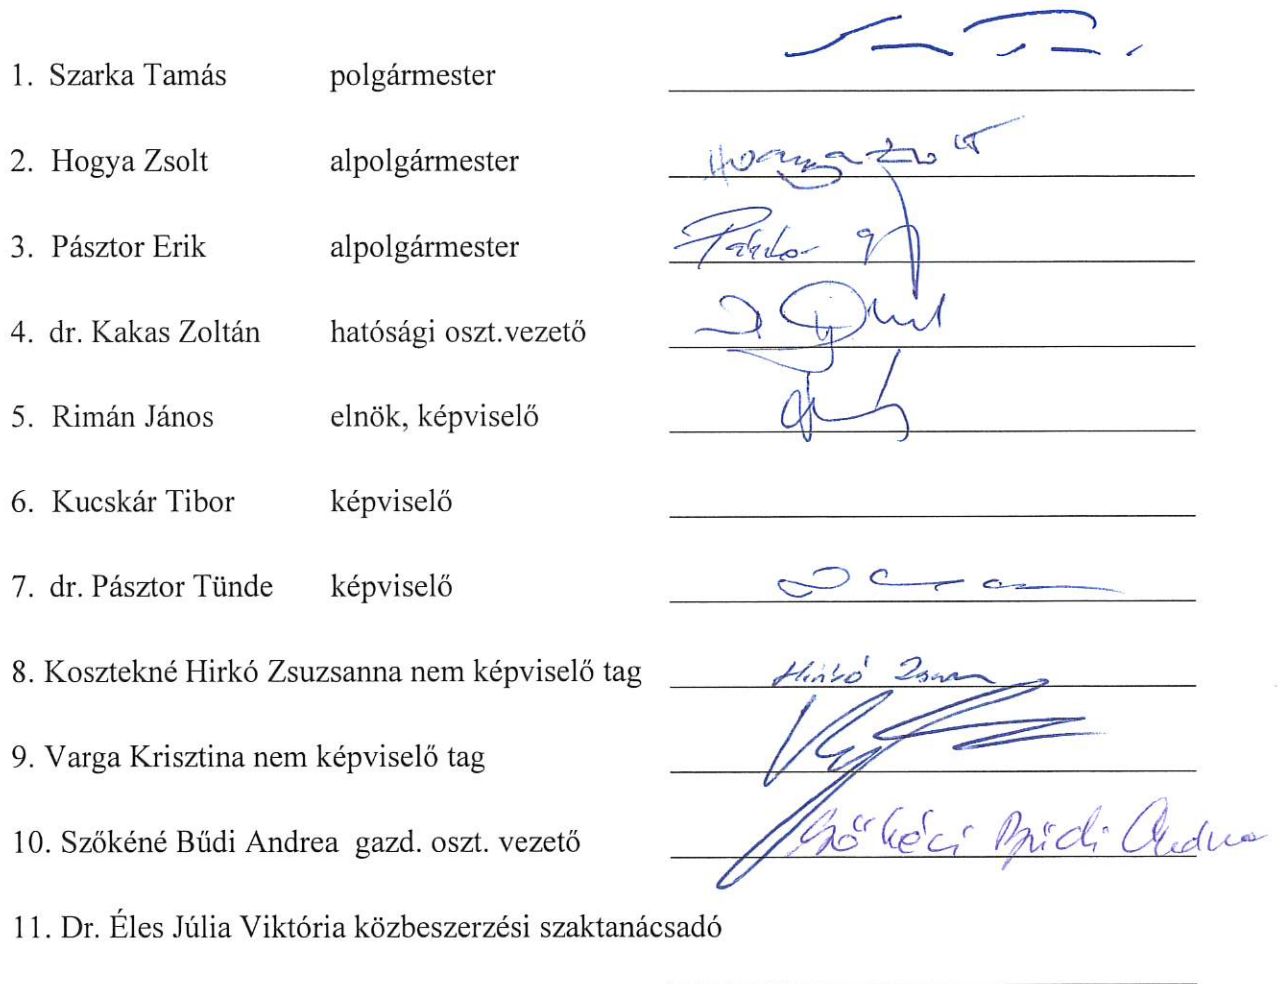 1. Szarka Tamás polgármester
2. Hogya Zsolt alpolgármester
3. Pásztor Erik alpolgármester
4. dr. Kakas Zoltán hatósági oszt.vezető
5. Rimán János elnök, képviselő
6. Kucskár Tibor képviselő
7. dr. Pásztor Tünde képviselő
8. Kosztekné Hirkó Zsuzsanna nem képviselő tag Hirkó Zsuzsa
9. Varga Krisztina nem képviselő tag
10. Szőkéné Bűdi Andrea gazd. oszt. vezető Szőkéné Bűdi Andrea
11. Dr. Éles Júlia Viktória közbeszerzési szaktanácsadó